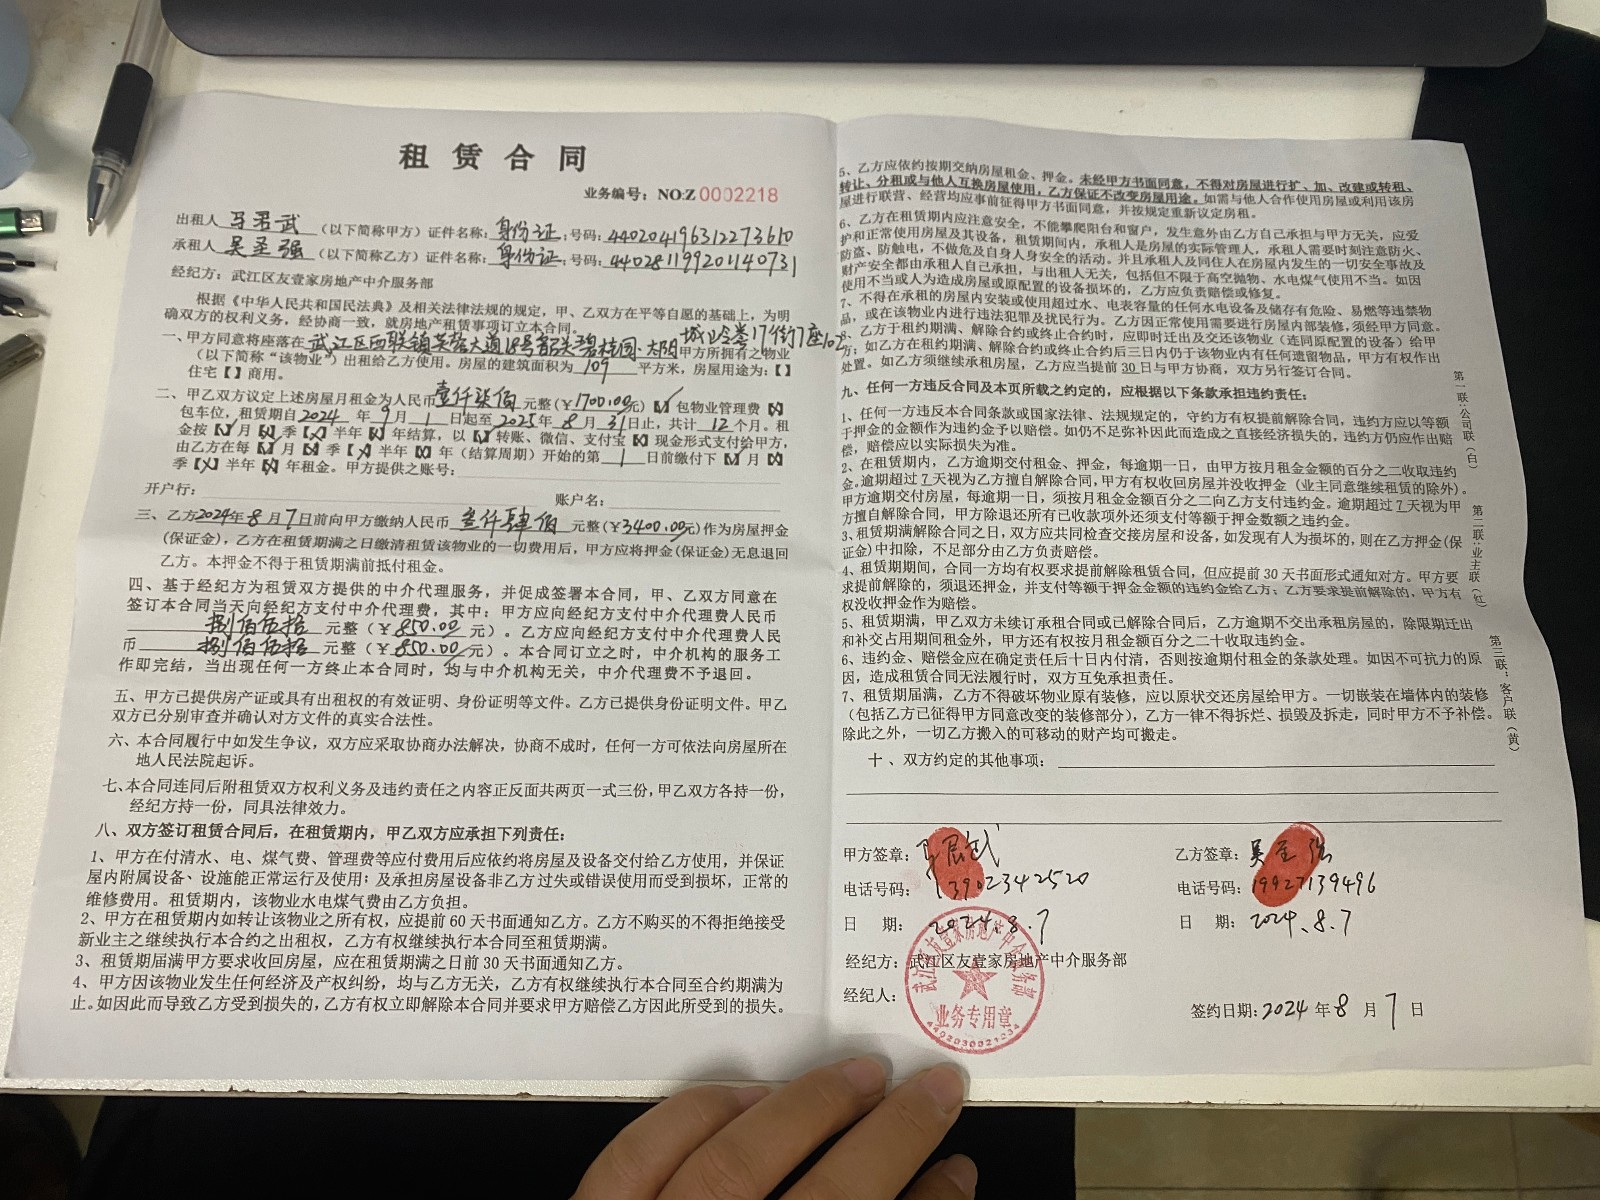 租 赁 合 同
业务编号：NO:Z 0002218
出租人 （以下简称甲方）证件名称：身份证；号码：440204196312273610
承租人 吴圣强 （以下简称乙方）证件名称：身份证；号码：440281199201140731
经纪方：武江区友壹家房地产中介服务部
根据《中华人民共和国民法典》及相关法律法规的规定，甲、乙双方在平等自愿的基础上，为明
确双方的权利义务，经协商一致，就房地产租赁事项订立本合同。
一、甲方同意将座落在武江区西联镇芙蓉大道18号韶关碧桂园·太阳城 17街7座102 甲方所拥有之物业
（以下简称“该物业”）出租给乙方使用。房屋的建筑面积为 109 平方米，房屋用途为：【】
住宅【】商用。
二、甲乙双方议定上述房屋月租金为人民币壹仟柒佰元整（￥1700.00元）【✓】包物业管理费【X】
包车位，租赁期自2024 年 9 月 1 日起至2025年 8 月 31日止，共计 12 个月。租
金按【✓】月【X】季【X】半年【X】年结算，以【✓】转账、微信、支付宝【X】现金形式支付给甲方，
由乙方在每【✓】月【X】季【X】半年【X】年（结算周期）开始的第 1 日前缴付下【✓】月【X】
季【X】半年【X】年租金。甲方提供之账号：
开户行： 账户名：
三、乙方2024年8月7日前向甲方缴纳人民币 叁仟肆佰 元整（￥3400.00元）作为房屋押金
（保证金），乙方在租赁期满之日缴清租赁该物业的一切费用后，甲方应将押金（保证金）无息退回
乙方。本押金不得于租赁期满前抵付租金。
四、基于经纪方为租赁双方提供的中介代理服务，并促成签署本合同，甲、乙双方同意在
签订本合同当天向经纪方支付中介代理费，其中：甲方应向经纪方支付中介代理费人民币
捌佰伍拾 元整（￥850.00 元）。乙方应向经纪方支付中介代理费人民
币 捌佰伍拾 元整（￥850.00元）。本合同订立之时，中介机构的服务工
作即完结，当出现任何一方终止本合同时，均与中介机构无关，中介代理费不予退回。
五、甲方已提供房产证或具有出租权的有效证明、身份证明等文件。乙方已提供身份证明文件。甲乙
双方已分别审查并确认对方文件的真实合法性。
六、本合同履行中如发生争议，双方应采取协商办法解决，协商不成时，任何一方可依法向房屋所在
地人民法院起诉。
七、本合同连同后附租赁双方权利义务及违约责任之内容正反面共两页一式三份，甲乙双方各持一份，
经纪方持一份，同具法律效力。
八、双方签订租赁合同后，在租赁期内，甲乙双方应承担下列责任：
1、甲方在付清水、电、煤气费、管理费等应付费用后应依约将房屋及设备交付给乙方使用，并保证
屋内附属设备、设施能正常运行及使用；及承担房屋设备非乙方过失或错误使用而受到损坏，正常的
维修费用。租赁期内，该物业水电煤气费由乙方负担。
2、甲方在租赁期内如转让该物业之所有权，应提前 60 天书面通知乙方。乙方不购买的不得拒绝接受
新业主之继续执行本合约之出租权，乙方有权继续执行本合同至租赁期满。
3、租赁期届满甲方要求收回房屋，应在租赁期满之日前 30 天书面通知乙方。
4、甲方因该物业发生任何经济及产权纠纷，均与乙方无关，乙方有权继续执行本合同至合约期满为
止。如因此而导致乙方受到损失的，乙方有权立即解除本合同并要求甲方赔偿乙方因此所受到的损失。
5、乙方应依约按期交纳房屋租金、押金。未经甲方书面同意，不得对房屋进行扩、加、改建或转租、
转让、分租或与他人互换房屋使用，乙方保证不改变房屋用途。如需与他人合作使用房屋或利用该房
屋进行联营、经营均应事前征得甲方书面同意，并按规定重新议定房租。
6、乙方在租赁期内应注意安全，不能攀爬阳台和窗户，发生意外由乙方自己承担与甲方无关，应爱
护和正常使用房屋及其设备，租赁期间内，承租人是房屋的实际管理人，承租人需要时刻注意防火、
防盗、防触电，不做危及自身人身安全的活动。并且承租人及同住人在房屋内发生的一切安全事故及
财产安全都由承租人自己承担，与出租人无关，包括但不限于高空抛物、水电煤气使用不当。如因
使用不当或人为造成房屋或原配置的设备损坏的，乙方应负责赔偿或修复。
7、不得在承租的房屋内安装或使用超过水、电表容量的任何水电设备及储存有危险、易燃等违禁物
品，或在该物业内进行违法犯罪及扰民行为。乙方因正常使用需要进行房屋内部装修，须经甲方同意。
8、乙方于租约期满、解除合约或终止合约时，应即时迁出及交还该物业（连同原配置的设备）给甲
方；如乙方在租约期满、解除合约或终止合约后三日内仍于该物业内有任何遗留物品，甲方有权作出
处置。如乙方须继续承租房屋，乙方应当提前 30 日与甲方协商，双方另行签订合同。
九、任何一方违反合同及本页所载之约定的，应根据以下条款承担违约责任：
1、任何一方违反本合同条款或国家法律、法规规定的，守约方有权提前解除合同，违约方应以等额
于押金的金额作为违约金予以赔偿。如仍不足弥补因此而造成之直接经济损失的，违约方仍应作出赔
偿，赔偿应以实际损失为准。
2、在租赁期内，乙方逾期交付租金、押金，每逾期一日，由甲方按月租金金额的百分之二收取违约
金。逾期超过 7 天视为乙方擅自解除合同，甲方有权收回房屋并没收押金（业主同意继续租赁的除外）。
甲方逾期交付房屋，每逾期一日，须按月租金金额百分之二向乙方支付违约金。逾期超过 7 天视为甲
方擅自解除合同，甲方除退还所有已收款项外还须支付等额于押金数额之违约金。
3、租赁期满解除合同之日，双方应共同检查交接房屋和设备，如发现有人为损坏的，则在乙方押金（保
证金）中扣除，不足部分由乙方负责赔偿。
4、租赁期期间，合同一方均有权要求提前解除租赁合同，但应提前 30 天书面形式通知对方。甲方要
求提前解除的，须退还押金，并支付等额于押金金额的违约金给乙方；乙方要求提前解除的，甲方有
权没收押金作为赔偿。
5、租赁期满，甲乙双方未续订承租合同或已解除合同后，乙方逾期不交出承租房屋的，除限期迁出
和补交占用期间租金外，甲方还有权按月租金额百分之二十收取违约金。
6、违约金、赔偿金应在确定责任后十日内付清，否则按逾期付租金的条款处理。如因不可抗力的原
因，造成租赁合同无法履行时，双方互免承担责任。
7、租赁期届满，乙方不得破坏物业原有装修，应以原状交还房屋给甲方。一切嵌装在墙体内的装修
（包括乙方已征得甲方同意改变的装修部分），乙方一律不得拆烂、损毁及拆走，同时甲方不予补偿。
除此之外，一切乙方搬入的可移动的财产均可搬走。
十、双方约定的其他事项：
甲方签章：
电话号码：13902342520
日 期：2024.8.7
乙方签章：吴圣强
电话号码：19927139496
日 期：2024.8.7
经纪方：武江区友壹家房地产中介服务部
经纪人：
签约日期：2024 年 8 月 7 日
武江区友壹家房地产中介服务部
业务专用章
第一联：公司联（白）
第二联：业主联（红）
第三联：客户联（黄）